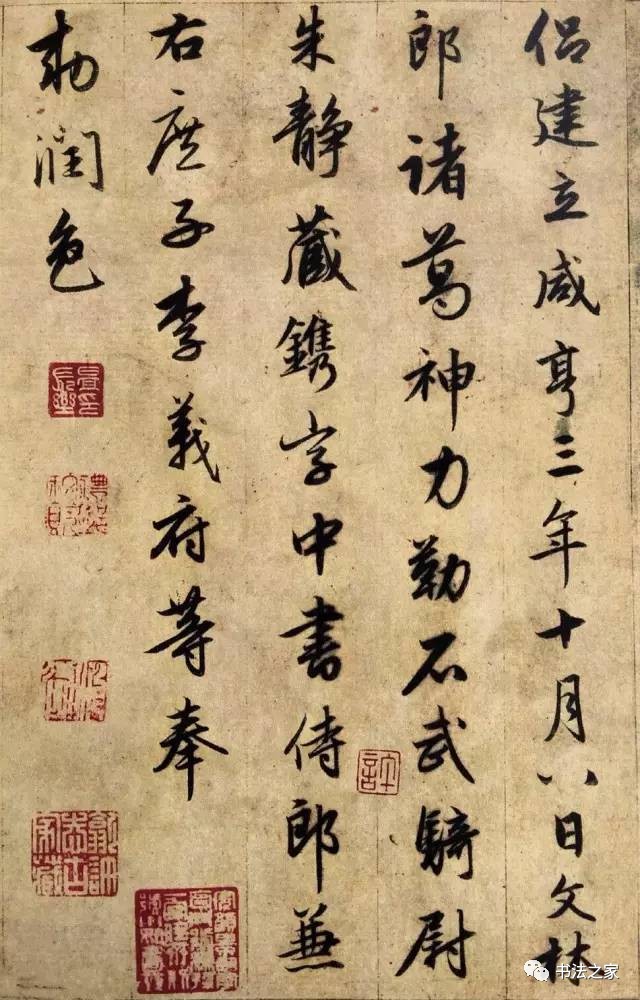 侣建立咸亨三年十月八日文林
郎诸葛神力勒石武骑尉
朱静藏鐫字中書侍郎兼
右庶子李義府等奉
勅潤色
許
书法之家